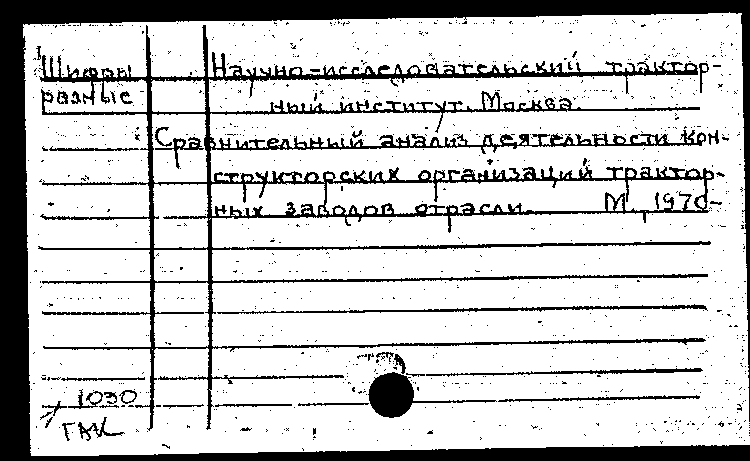 Шифры
разные
Научно-исследовательский трактор-
ный институт. Москва.
Сравнительный анализ деятельности кон-
структорских организаций трактор-
ных заводов отрасли. М., 1970-
1030
ГАК